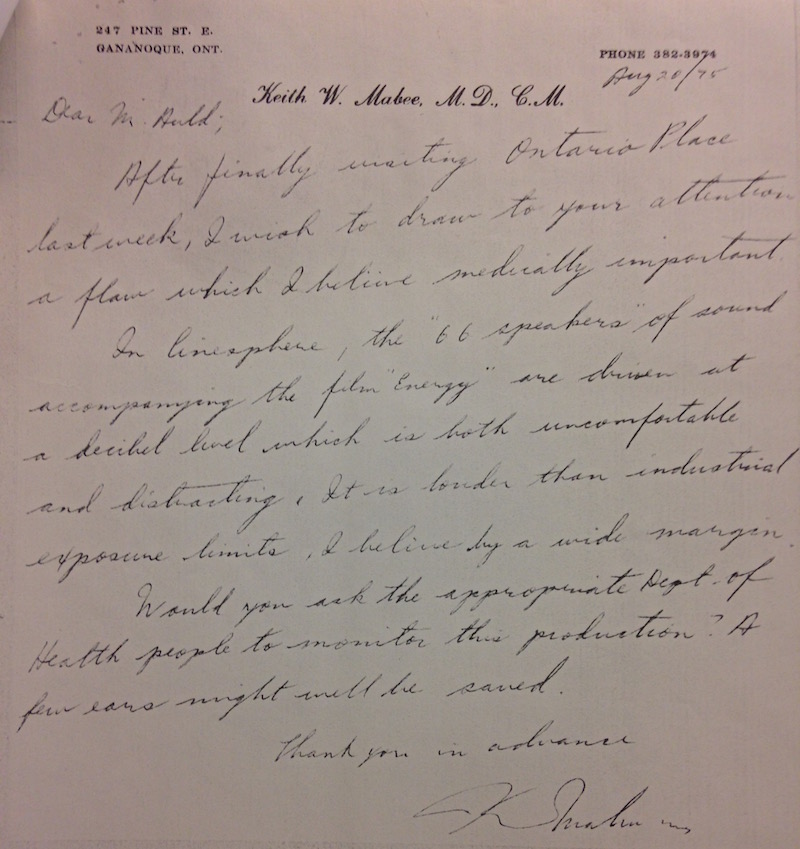 247 PINE ST. E.
GANANOQUE, ONT.
PHONE 382-3974
Aug 20/75
Keith W. Mabee, M.D., C.M.
Dear Mr. Auld;
After finally visiting Ontario Place
last week, I wish to draw to your attention
a flaw which I believe medically important.
In Cinesphere, the "66 speakers" of sound
accompanying the film "Energy" are driven at
a decibel level which is both uncomfortable
and distracting. It is louder than industrial
exposure limits, I believe by a wide margin.
Would you ask the appropriate Dept. of
Health people to monitor this production? A
few ears might well be saved.
Thank you in advance
K Mabee MD